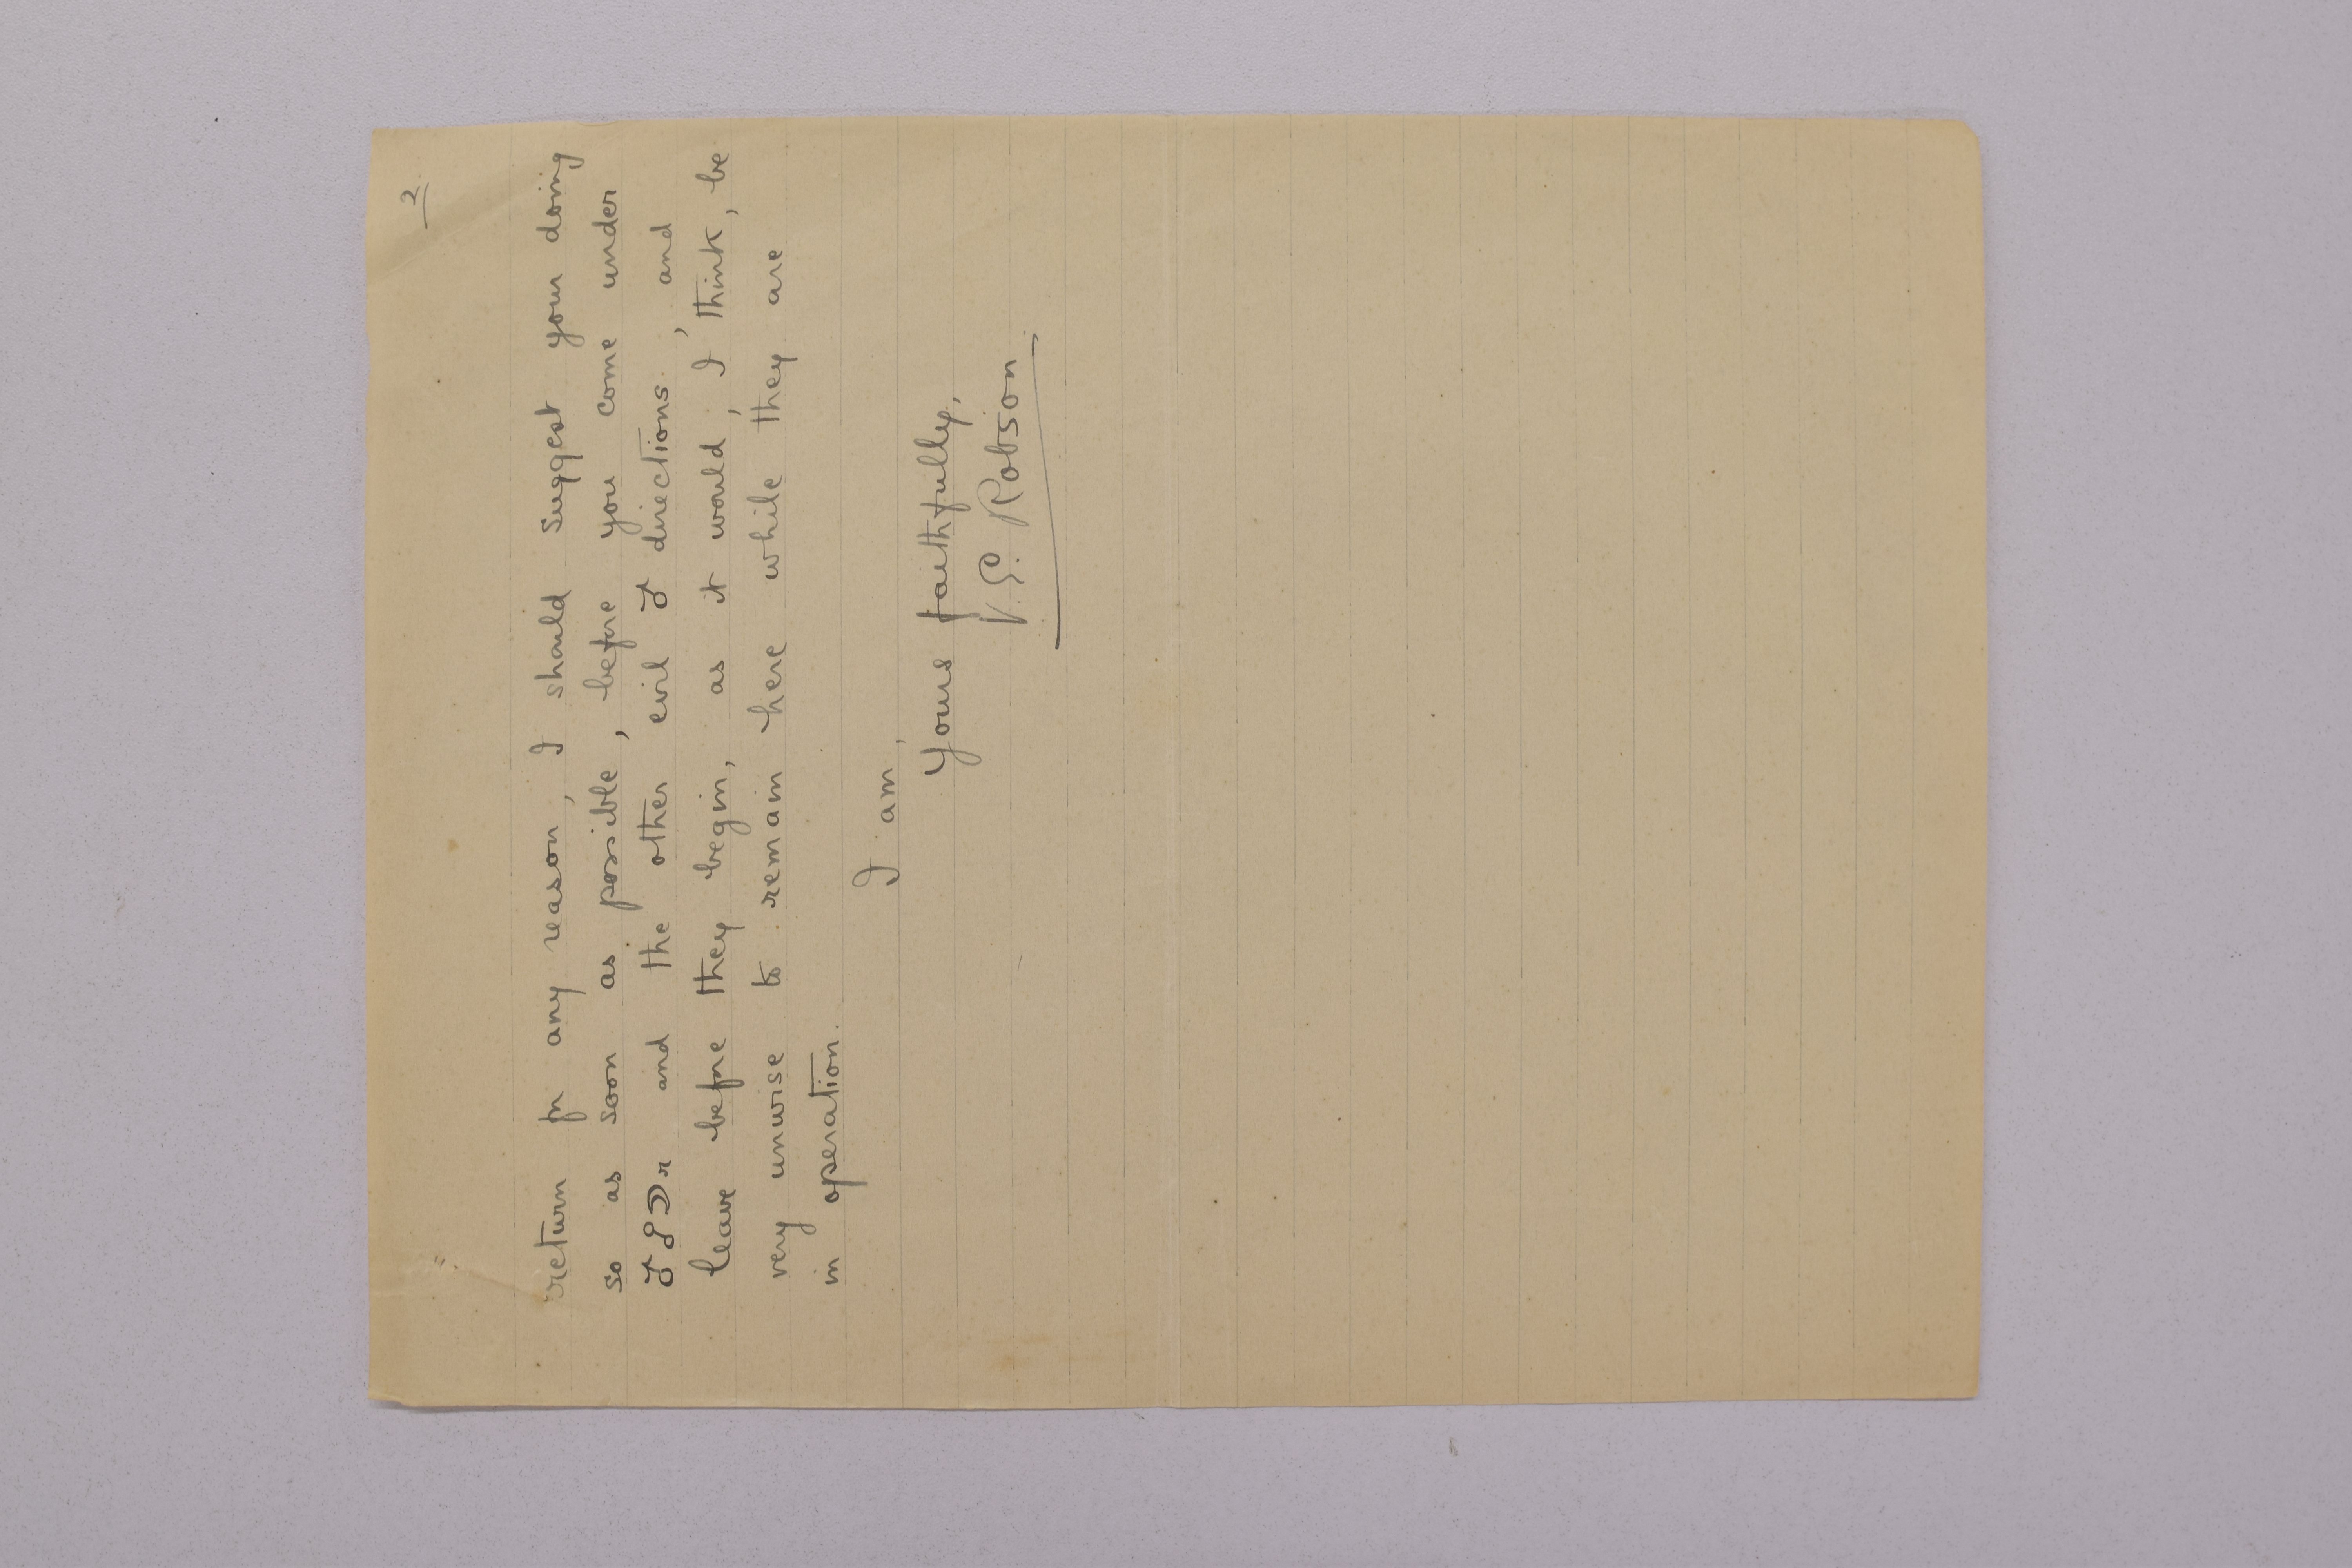 2
return for any reason, I should suggest your doing
so as soon as possible, before you come under
♂☍☽r and the other evil ♂ directions, and
leave before they begin, as it would, I think, be
very unwise to remain here while they are
in operation.
I am,
Yours faithfully,
V.E. Robson